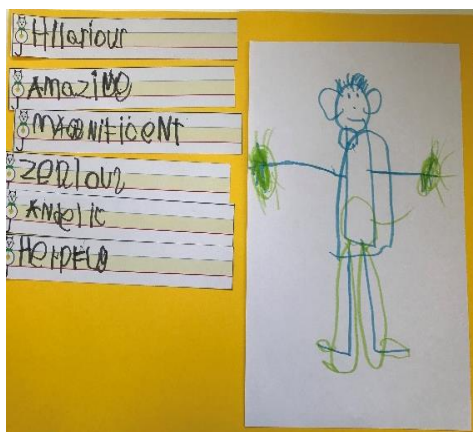 HIlariour
AmaziNg
MAgNificeNt
zeniour
ANgelic
HelpFul